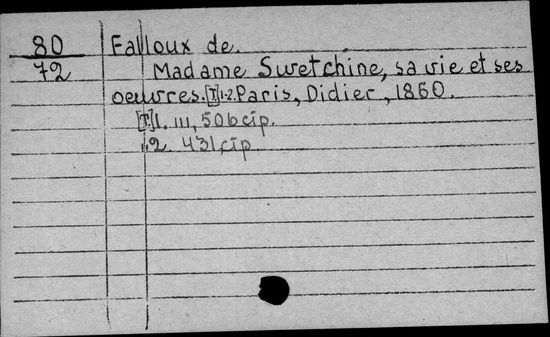 80 Falloux de.
72 Madame Swetchine, sa vie et ses
oeuvres. [T] 1-2. Paris, Didier, 1860.
[T.] 1. III, 506 стр.
" 2. 431 стр.